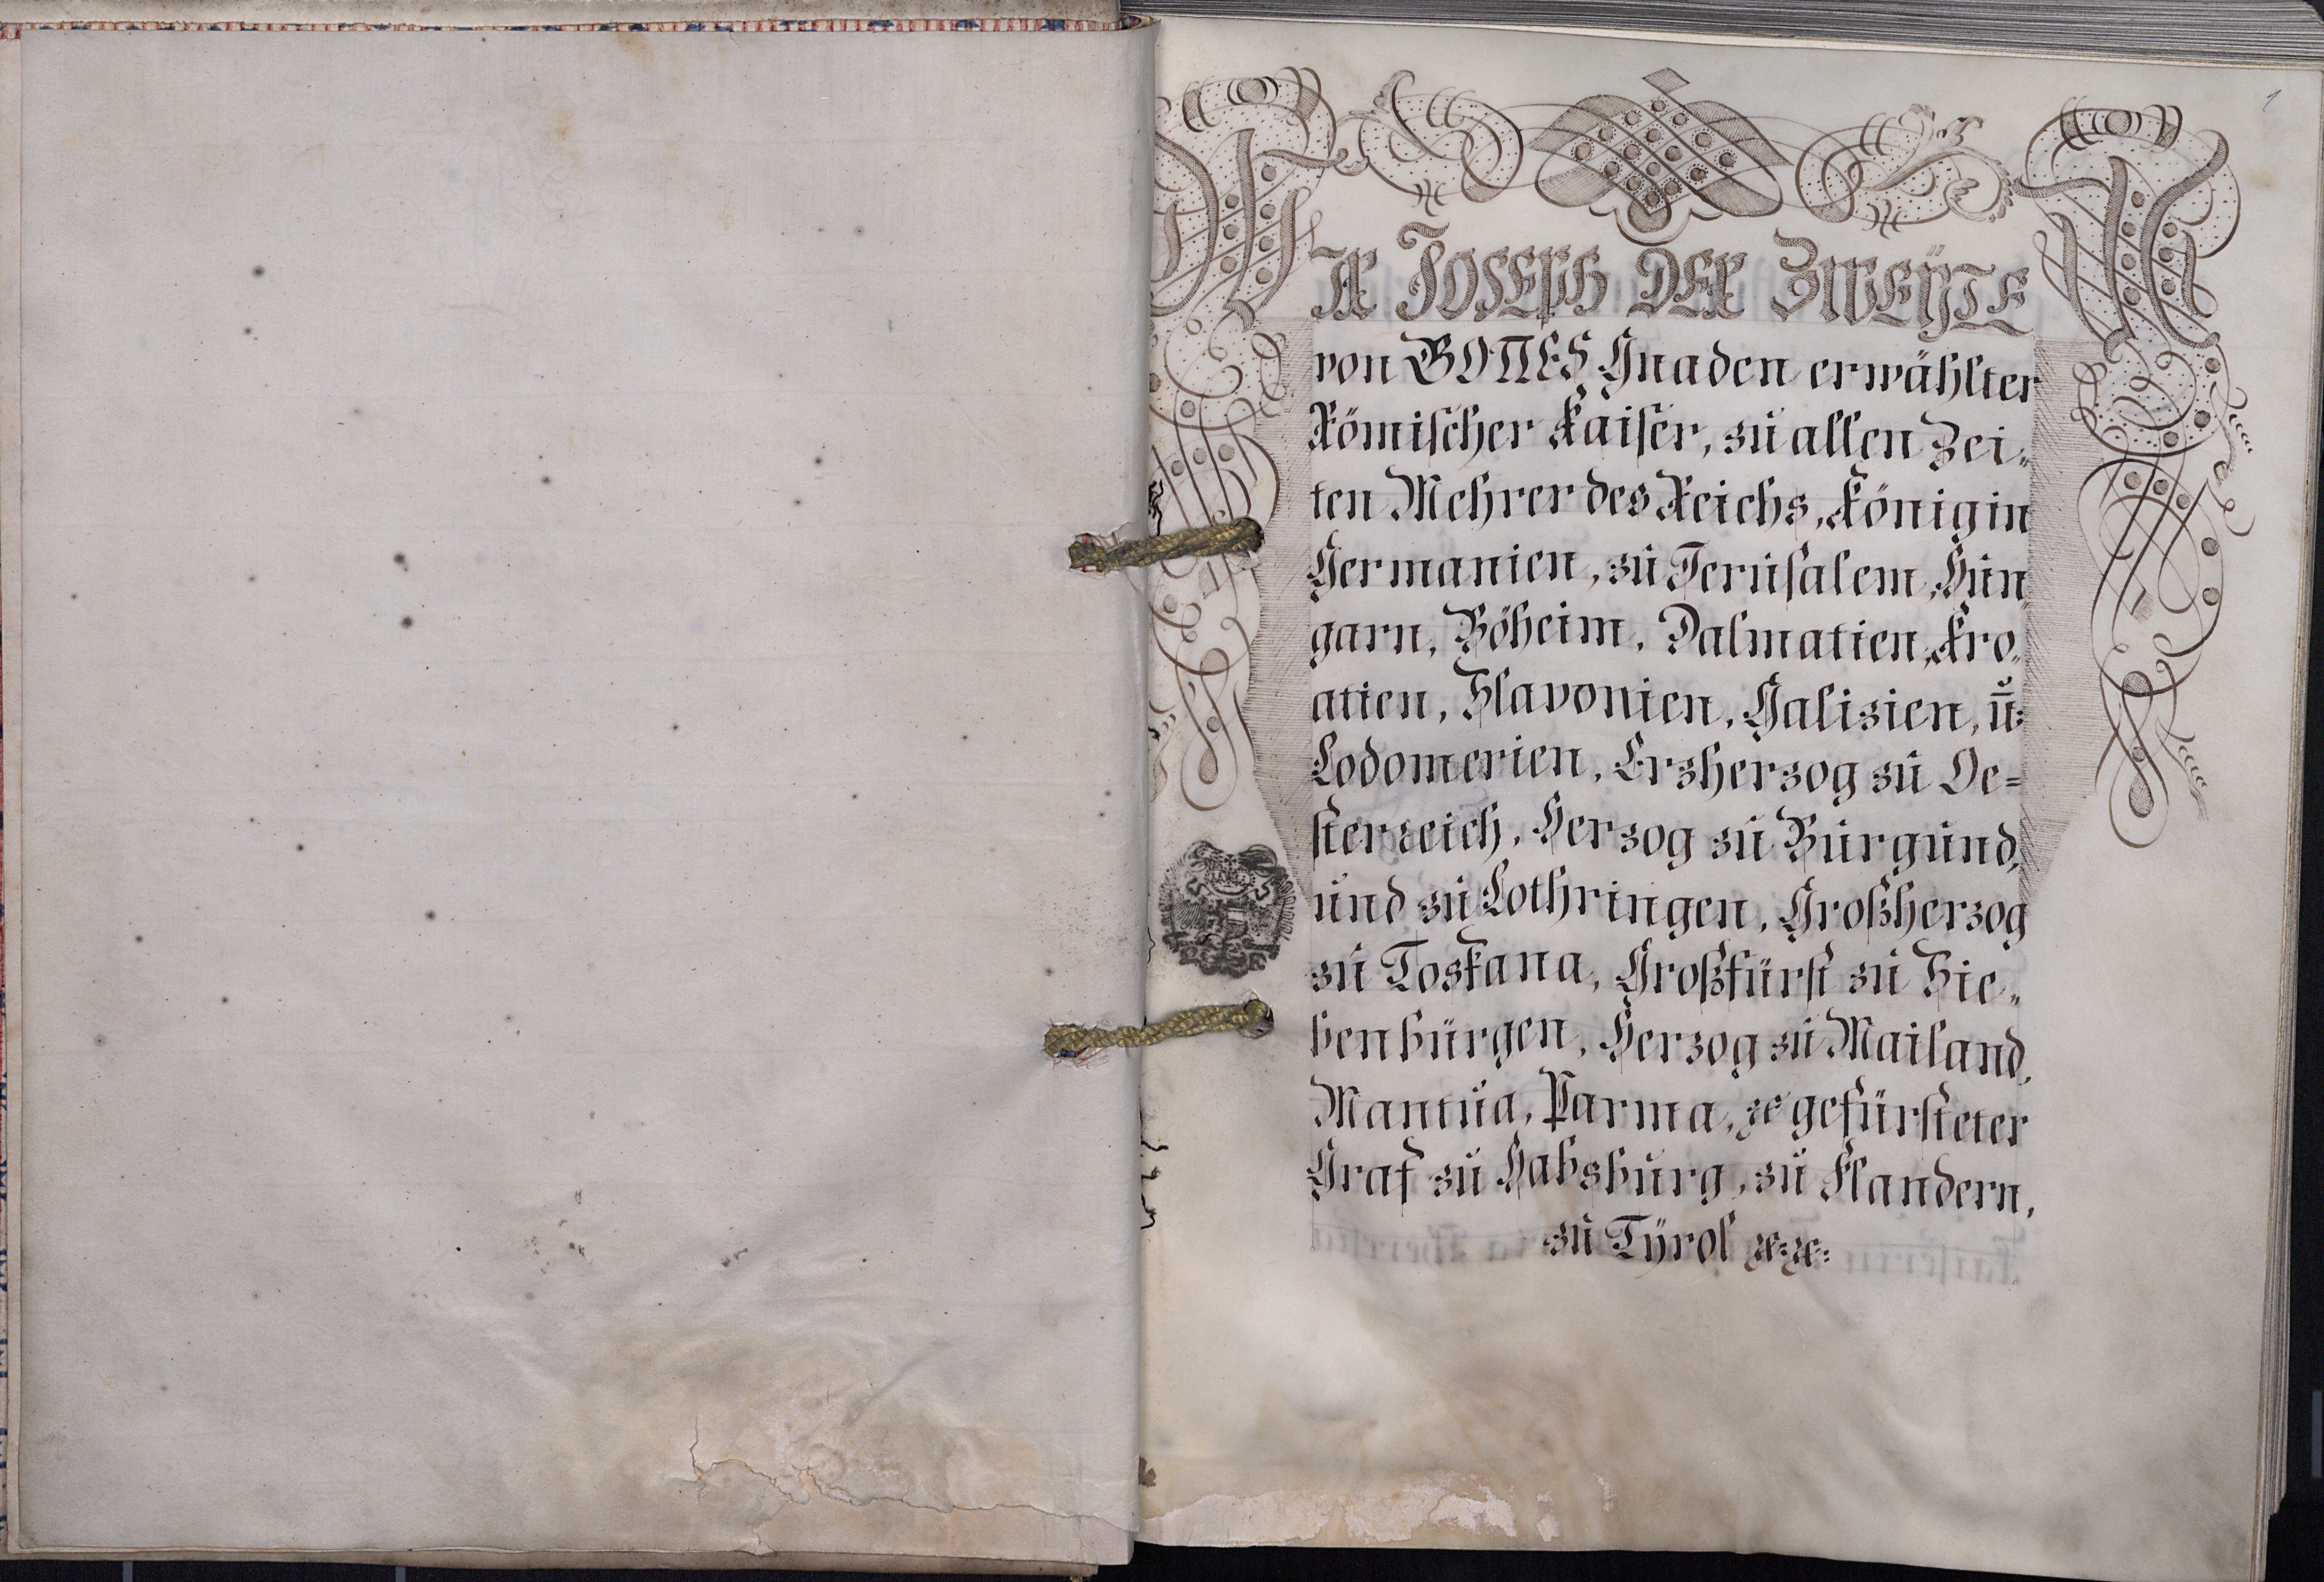 1
WIR JOSEPH DER ZWEŸTE
von GOTTES Gnaden erwählter
Römischer Kaiser, zu allen Zei„
ten Mehrer des Reichs, König in
Germanien, zu Jerusalem, Hun„
garn, Böheim, Dalmatien, Kro„
atien, Slavonien, Galizien, u:
Lodomerien, Erzherzog zu Oe=
sterreich, Herzog zu Burgund,
und zu Lothringen, Großherzog
zu Toskana, Großfürst zu Sie„
benbürgen, Herzog zu Mailand,
Mantua, Parma, ꝛc gefürsteter
Graf zu Habsburg, zu Flandern,
zu Tÿrol ꝛc: ꝛc: